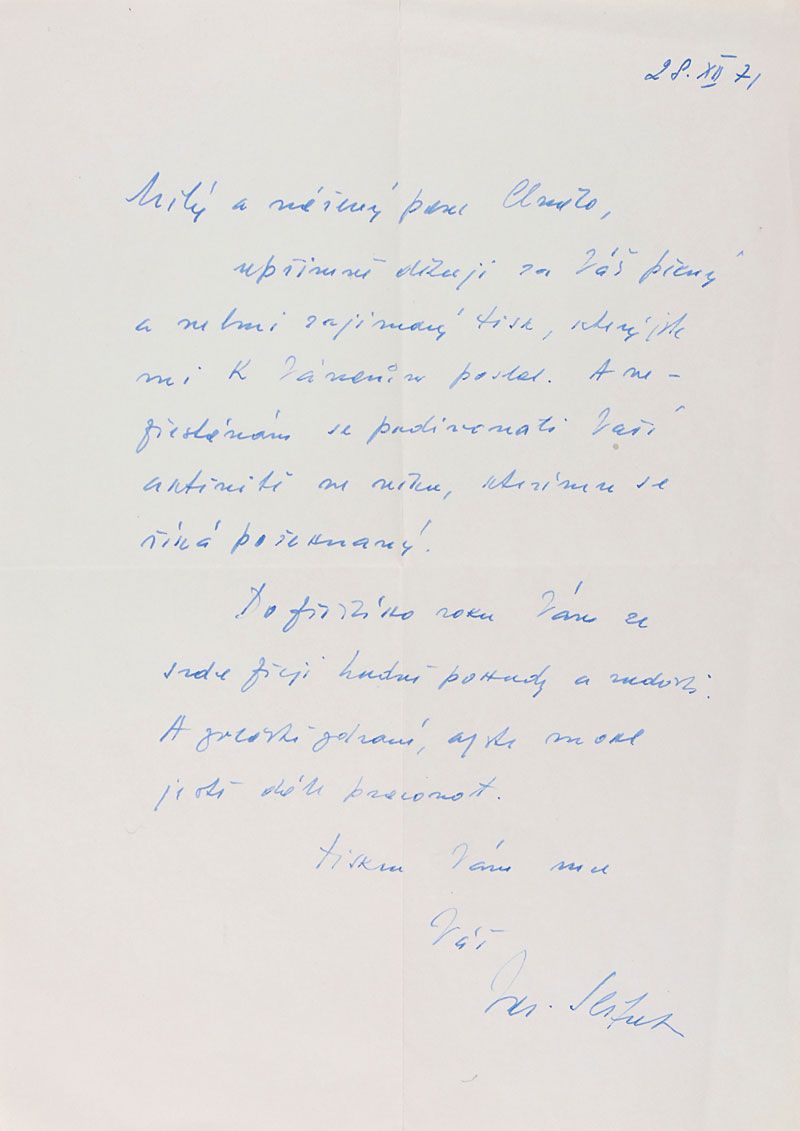 28. XII 71
Milý a vážený pane Chmelo,
upřímně děkuji za Váš pěkný
a velmi zajímavý tisk, který jste
mi k Vánocům poslal. A ne-
přestávám se podivovati Vaší
aktivitě ve věku, kterému se
říká požehnaný.
Do příštího roku Vám ze
srdce přeji hodně pohody a radosti.
A zvláště zdraví, abyste mohl
ještě dále pracovat.
Tisknu Vám ruce
Váš
Jar. Seifert